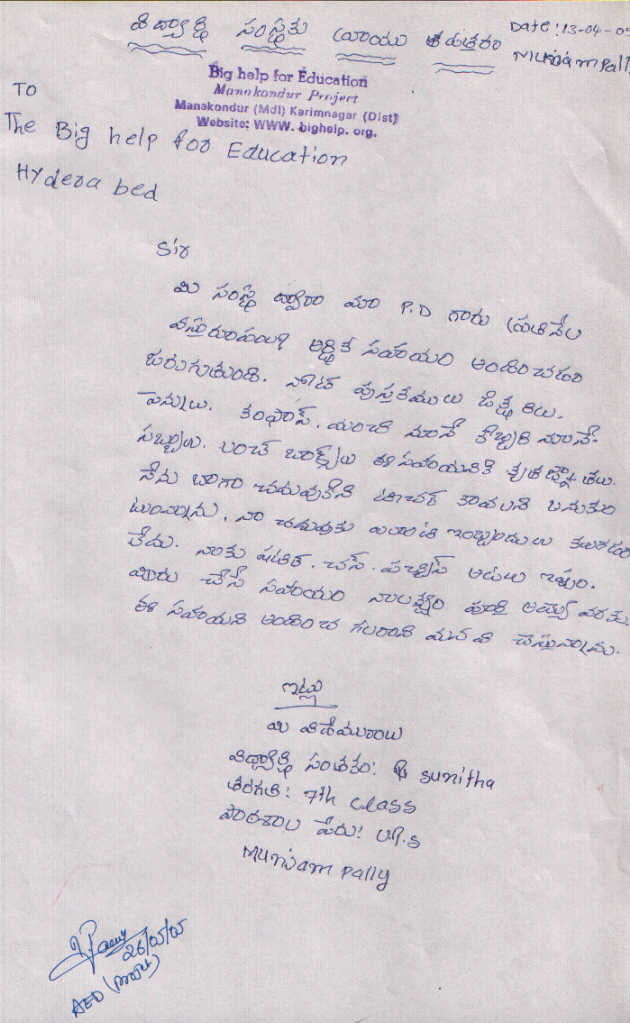 విద్యార్థి సంస్థకు వ్రాయు ఉత్తరం
Date: 13-04-0
Munjampally
Big help for Education
Manakondur Project
Manakondur (Mdl) Karimnagar (Dist)
Website: WWW. bighelp. org.
TO
The Big help for Education
Hydera bed
Sir
మీ సంస్థ ద్వారా మా P.D గారు ప్రతినెల
వస్తురూపంలో ఆర్థిక సహాయం అందించడం
జరుగుతుంది. నోట్ పుస్తకములు
పెన్నులు. కంపాస్. మంచి నూనె కొబ్బరి నూనె.
సబ్బులు. లంచ్ బాక్స్‌లు ఈ సహాయానికి కృతజ్ఞతలు.
నేను బాగా చదువుకొని టీచర్ కావాలని అనుకుం
టున్నాను. నా చదువుకు ఎలాంటి ఇబ్బందులు కలగడం
లేదు. నాకు షటిల్. చెస్. పచ్చీస్ ఆటలు ఇష్టం.
మీరు చేసే సహాయం నాలక్ష్యం పూర్తి అయ్యే వరకు
ఈ సహాయని అందించ గలరాని మనవి చేస్తున్నాను.
ఇట్లు
మీ విదేయురాలు
విద్యార్థి సంతకం: sunitha
తరగతి: 7th class
పాఠశాల పేరు: U.P.S
Munjam pally
26/05/05
AEO